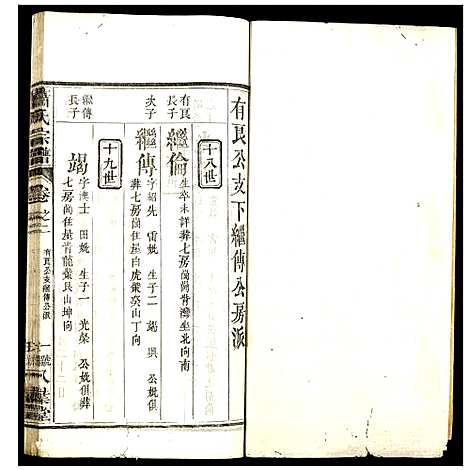 有艮公支下繼傳公房派
十八世
有艮長子
繼倫
生卒未詳葬七房崗背灣坐北向南
次子
繼傳
字紹先 雷娩 生子二 竭 興 公娩俱
葬七房崗庄屋白虎葬亥山丁向
十九世
繼傳長子
竭
字漢士 田娩 生子一 光榮 公娩俱葬
七房崗庄屋背龍葬艮山坤向
氏宗譜
卷之二
有艮公支繼傳公派
一
八葉堂